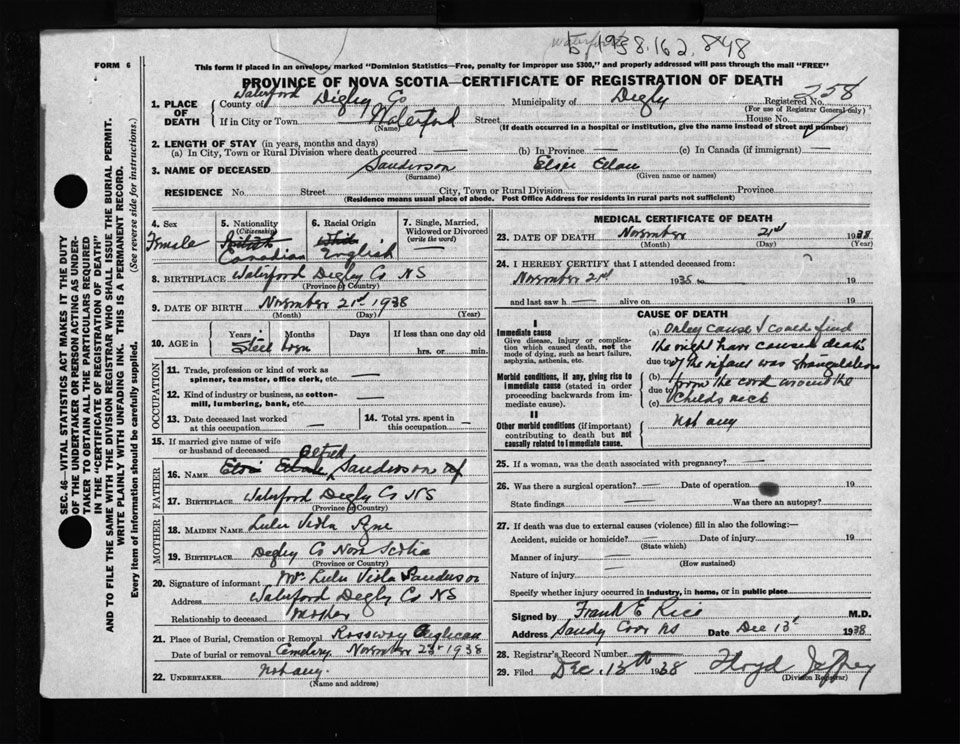 Waterford
5 1938.162.848
FORM 6
This form if placed in an envelope, marked "Dominion Statistics—Free, penalty for improper use $300," and properly addressed will pass through the mail "FREE"
PROVINCE OF NOVA SCOTIA—CERTIFICATE OF REGISTRATION OF DEATH
258
1. PLACE OF DEATH
Waterford
County of Digby Co
Municipality of Digby
Registered No.
(For use of Registrar General only)
If in City or Town Waterford
(Name)
Street
House No.
(If death occurred in a hospital or institution, give the name instead of street and number)
2. LENGTH OF STAY (in years, months and days)
(a) In City, Town or Rural Division where death occurred —
(b) In Province —
(c) In Canada (if immigrant) —
3. NAME OF DECEASED Sanderson
(Surname)
(Given name or names)
RESIDENCE No. Street City, Town or Rural Division Province
(Residence means usual place of abode. Post Office Address for residents in rural parts not sufficient)
4. Sex
Female
5. Nationality
(Citizenship)
British
Canadian
6. Racial Origin
White
English
7. Single, Married, Widowed or Divorced
(write the word)
—
8. BIRTHPLACE Waterford Digby Co NS
(Province or Country)
9. DATE OF BIRTH November 21st 1938
(Month) (Day) (Year)
10. AGE in
Years Months Days If less than one day old
Still born
hrs. or min.
OCCUPATION
11. Trade, profession or kind of work as spinner, teamster, office clerk, etc. —
12. Kind of industry or business, as cotton-mill, lumbering, bank, etc. —
13. Date deceased last worked at this occupation —
14. Total yrs. spent in this occupation —
15. If married give name of wife or husband of deceased
FATHER
Alfred
16. NAME Sanderson
17. BIRTHPLACE Waterford Digby Co NS
(Province or Country)
MOTHER
18. MAIDEN NAME Lulu Viola Pyne
19. BIRTHPLACE Digby Co Nova Scotia
(Province or Country)
20. Signature of informant Mrs Lulu Viola Sanderson
Address Waterford Digby Co NS
Relationship to deceased Mother
21. Place of Burial, Cremation or Removal Rossway Anglican
Date of burial or removal Cemetery November 23rd 1938
22. UNDERTAKER Not any.
(Name and address)
MEDICAL CERTIFICATE OF DEATH
23. DATE OF DEATH November 21st 1938
(Month) (Day) (Year)
24. I HEREBY CERTIFY that I attended deceased from:
19
and last saw h — alive on 19
CAUSE OF DEATH
I
Immediate cause
Give disease, injury or complication which caused death, not the mode of dying, such as heart failure, asphyxia, asthenia, etc.
Morbid conditions, if any, giving rise to immediate cause (stated in order proceeding backwards from immediate cause).
II
Other morbid conditions (if important) contributing to death but not causally related to immediate cause.
(a) Onley cause I could find
the might have caused death
due to of the infant was strangulation
(b) from the cord around the
due to
(c) childs neck
not any
25. If a woman, was the death associated with pregnancy? —
26. Was there a surgical operation? — Date of operation 19
State findings — Was there an autopsy? —
27. If death was due to external causes (violence) fill in also the following:—
Accident, suicide or homicide? — Date of injury 19
(State which)
Manner of injury —
(How sustained)
Nature of injury —
Specify whether injury occurred in industry, in home, or in public place
Signed by Frank E Rice M.D.
Address Sandy Cove NS Date Dec 13th 1938
28. Registrar's Record Number
29. Filed Dec. 13th 1938 Floyd Jeffrey
(Division Registrar)
SEC. 46—VITAL STATISTICS ACT MAKES IT THE DUTY
OF THE UNDERTAKER OR PERSON ACTING AS UNDER-
TAKER TO OBTAIN ALL THE PARTICULARS REQUIRED
IN THE "CERTIFICATE OF REGISTRATION OF DEATH"
AND TO FILE THE SAME WITH THE DIVISION REGISTRAR WHO SHALL ISSUE THE BURIAL PERMIT.
WRITE PLAINLY WITH UNFADING INK. THIS IS A PERMANENT RECORD.
Every item of information should be carefully supplied. (See reverse side for instructions.)